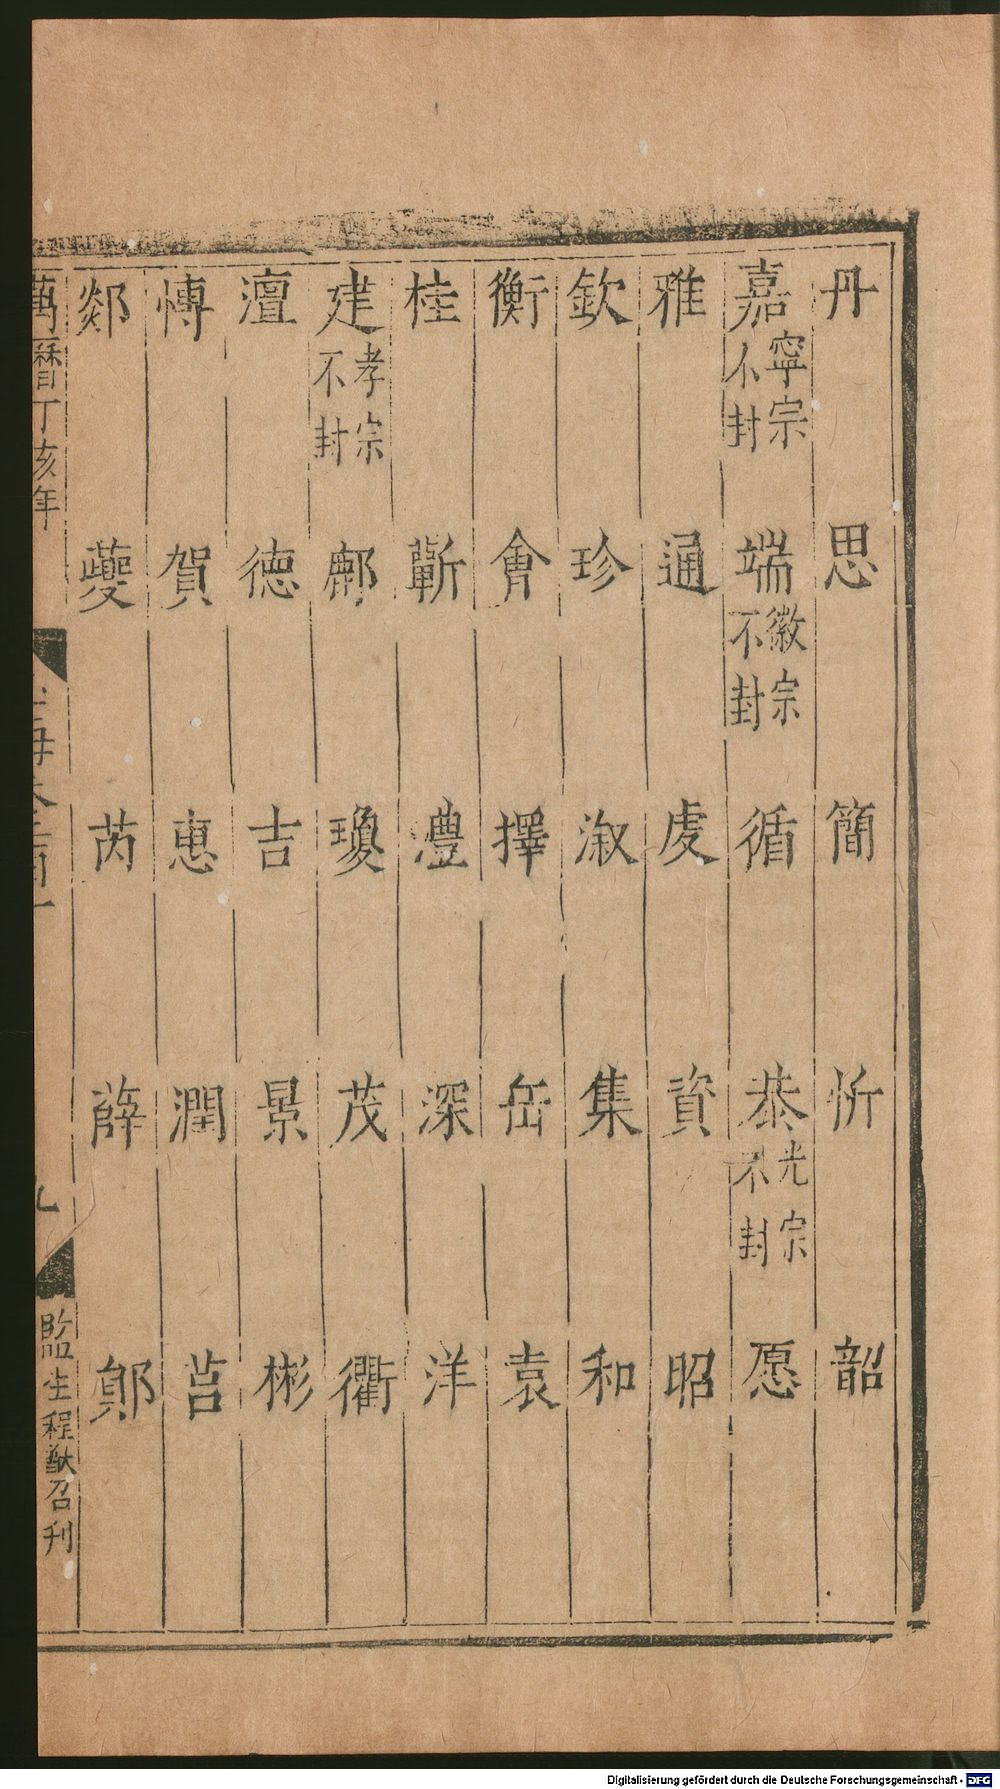 丹 思 簡 忻 韶
嘉寧宗不封 端徽宗不封 循 恭光宗不封 愿
雅 通 虔 資 昭
欽 珍 淑 集 和
衡 會 擇 岳 袁
桂 蘄 澧 深 洋
建孝宗不封 鄜 瓊 茂 衢
澶 德 吉 景 彬
慱 賀 惠 潤 莒
郯 夔 芮 薛 鄖
萬曆丁亥年 九 監生程猷召刊
Digitalisierung gefördert durch die Deutsche Forschungsgemeinschaft - DFG